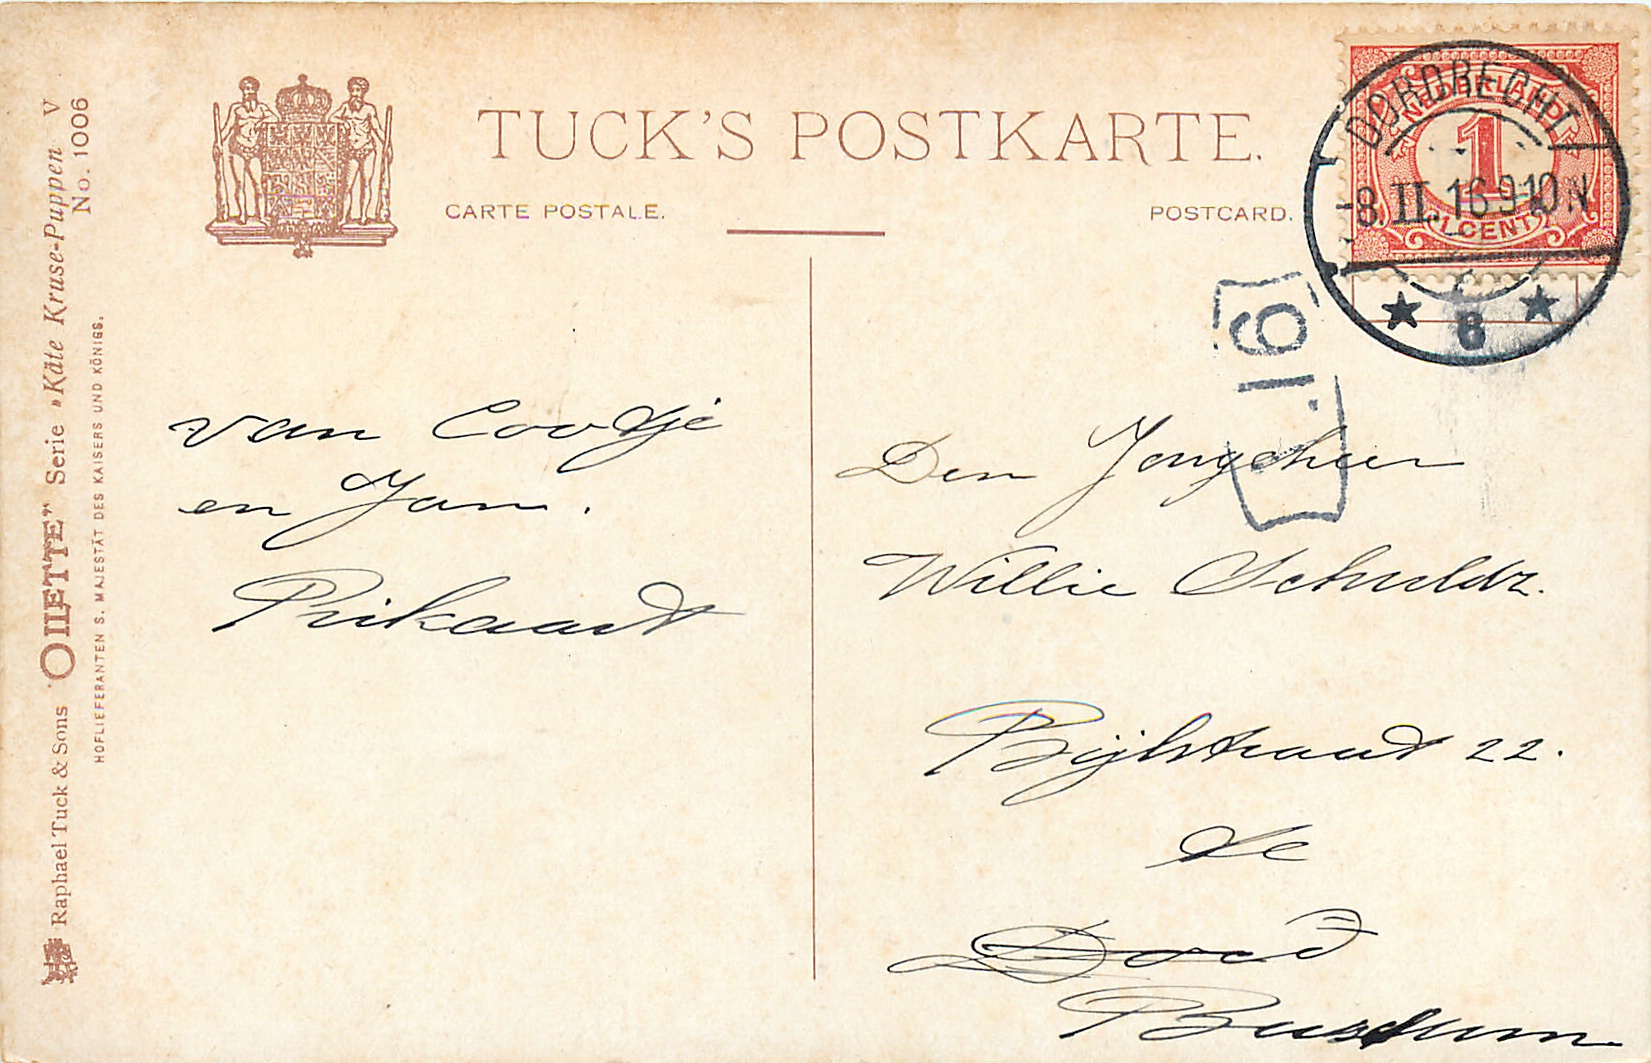 TUCK'S POSTKARTE.
CARTE POSTALE.
POSTCARD.
NEDERLAND
1
1 CENT
DORDRECHT
8.II.16 9-10 N
8
19
Raphael Tuck & Sons "OILETTE" Serie »Käte Kruse-Puppen V
No. 1006
HOFLIEFERANTEN S. MAJESTÄT DES KAISERS UND KÖNIGS.
van Cootje
en Jan.
Prikaart
Den Jongeheer
Willie Schuldz.
Bijlstraat 22.
te
Dord
Bussum.